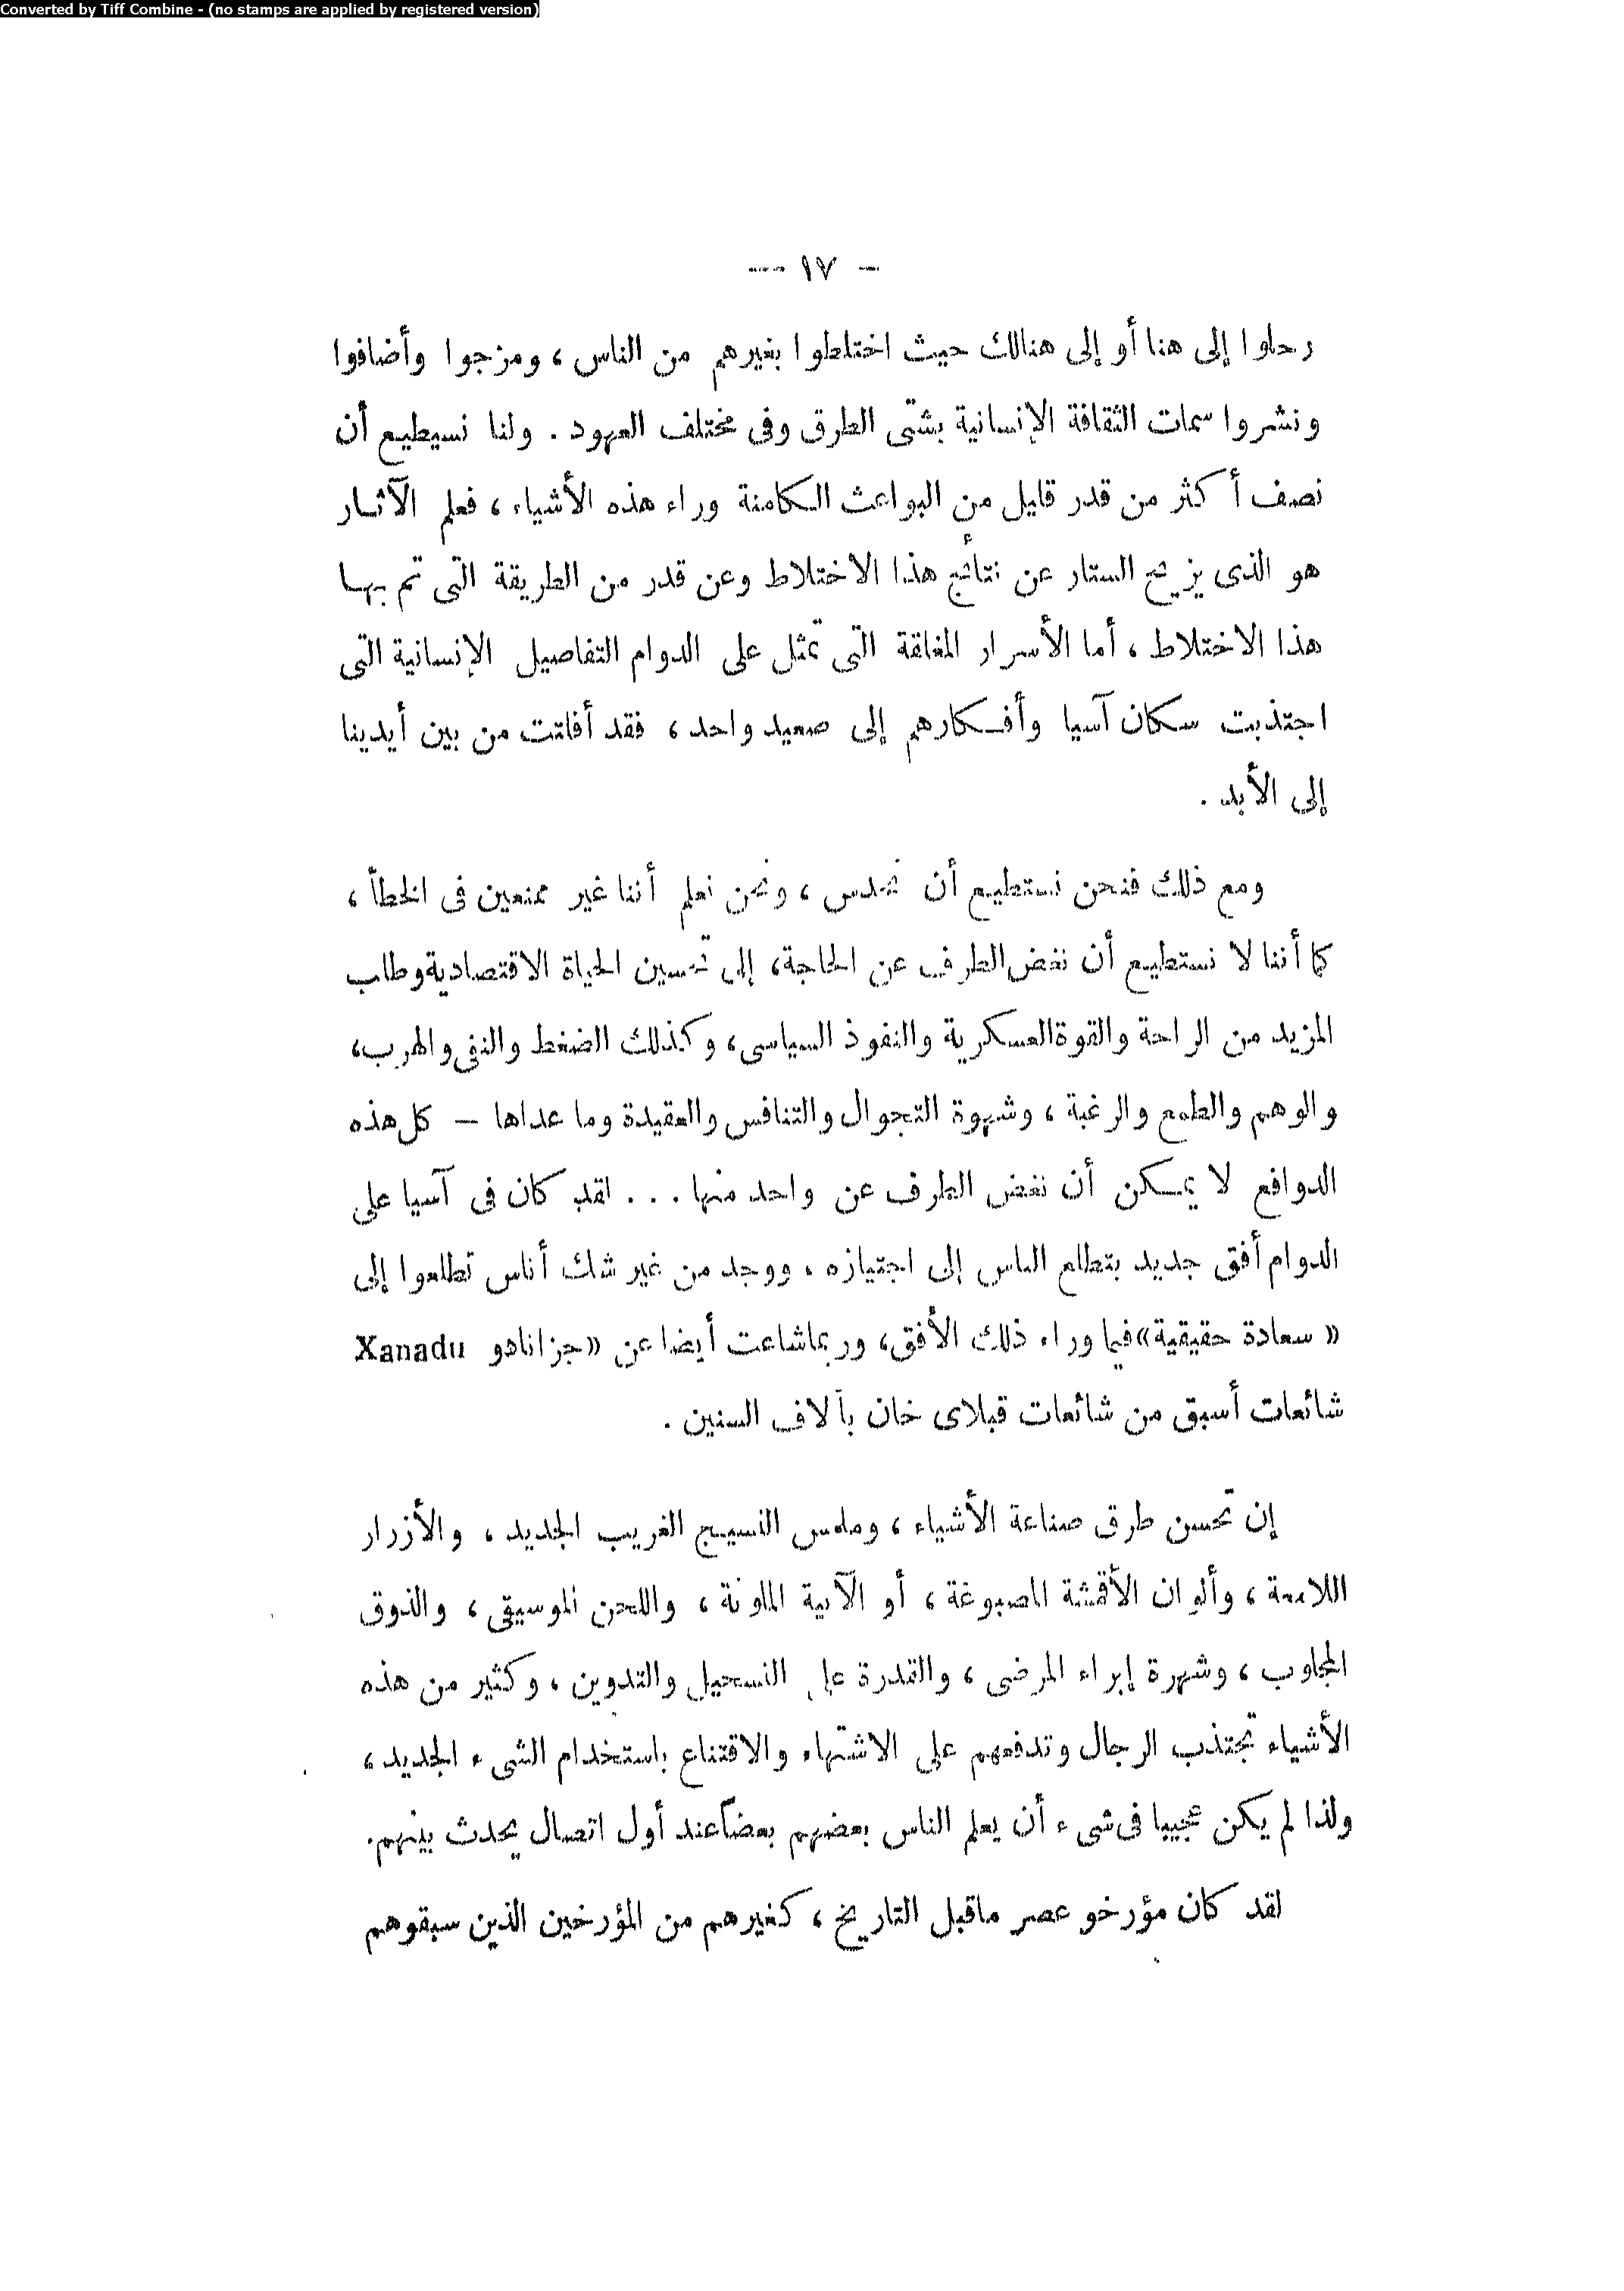 Converted by Tiff Combine - (no stamps are applied by registered version)
— ١٧ —
رحلوا إلى هنا أو إلى هنالك حيث اختلطوا بغيرهم من الناس ، ومزجوا وأضافوا
ونشروا سمات الثقافة الإنسانية بشتى الطرق وفى مختلف العهود . ولنا نسيطيع أن
نصف أكثر من قدر قليل من البواعث الكامنة وراء هذه الأشياء ، فعلم الآثار
هو الذى يزيح الستار عن نتائج هذا الاختلاط وعن قدر من الطريقة التى تم بها
هذا الاختلاط ، أما الأسرار المغلقة التى تمثل على الدوام التفاصيل الإنسانية التى
اجتذبت سكان آسيا وأفكارهم إلى صعيد واحد ، فقد أفلتت من بين أيدينا
إلى الأبد .
ومع ذلك فنحن نستطيع أن نحدس ، ونحن نعلم أننا غير ممنعين فى الخطأ ،
كما أننا لا نستطيع أن نغض الطرف عن الحاجة ، إلى تحسين الحياة الاقتصادية وطلب
المزيد من الراحة والقوة العسكرية والنفوذ السياسى ، وكذلك الضغط والنفى والهرب ،
والوهم والطمع والرغبة ، وشهوة التجوال والتنافس والعقيدة وما عداها — كل هذه
الدوافع لا يمكن أن نغض الطرف عن واحد منها . . . لقد كان فى آسيا على
الدوام أفق جديد يتطلع الناس إلى اجتيازه ، ووجد من غير شك أناس تطلعوا إلى
« سعادة حقيقية » فيما وراء ذلك الأفق ، وربما شاعت أيضا عن « جزانادو Xanadu
شائعات أسبق من شائعات قبلاى خان بآلاف السنين .
إن تحسن طرق صناعة الأشياء ، وملمس النسيج الغريب الجديد ، والأزرار
اللامعة ، وألوان الأقمشة المصبوغة ، أو الآنية الملونة ، واللحن الموسيقى ، والذوق
المجلوب ، وشهرة إبراء المرضى ، والقدرة على التسجيل والتدوين ، وكثير من هذه
الأشياء تجتذب الرجال وتدفعهم على الاشتهاء والاقتناع باستخدام الشىء الجديد ،
ولذا لم يكن عجيبا فى شىء أن يعلم الناس بعضهم بعضاً عند أول اتصال يحدث بينهم.
لقد كان مؤرخو عصر ماقبل التاريخ ، كغيرهم من المؤرخين الذين سبقوهم